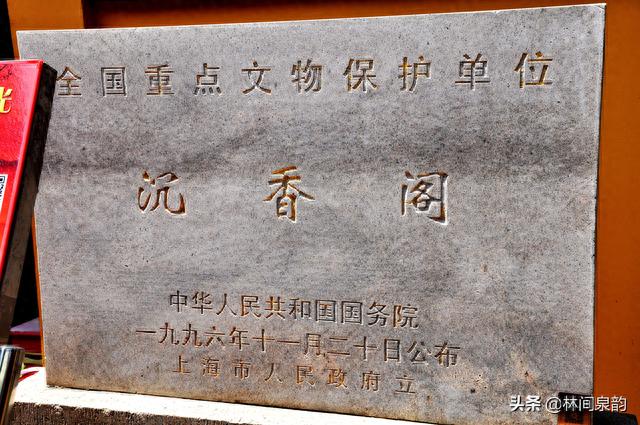 全国重点文物保护单位
沉香阁
中华人民共和国国务院
一九九六年十一月二十日公布
上海市人民政府立
头条 @林间泉韵